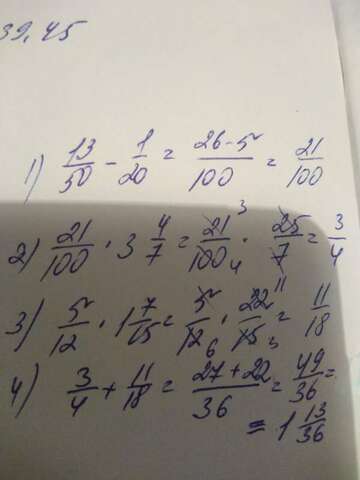 39,45
1) 13/50 - 1/20 = 26-5/100 = 21/100
2) 21/100 · 3 4/7 = 21/100 · 25/7 = 3/4
3) 5/12 · 1 7/15 = 5/12 · 22/15 = 11/18
4) 3/4 + 11/18 = 27+22/36 = 49/36 =
= 1 13/36